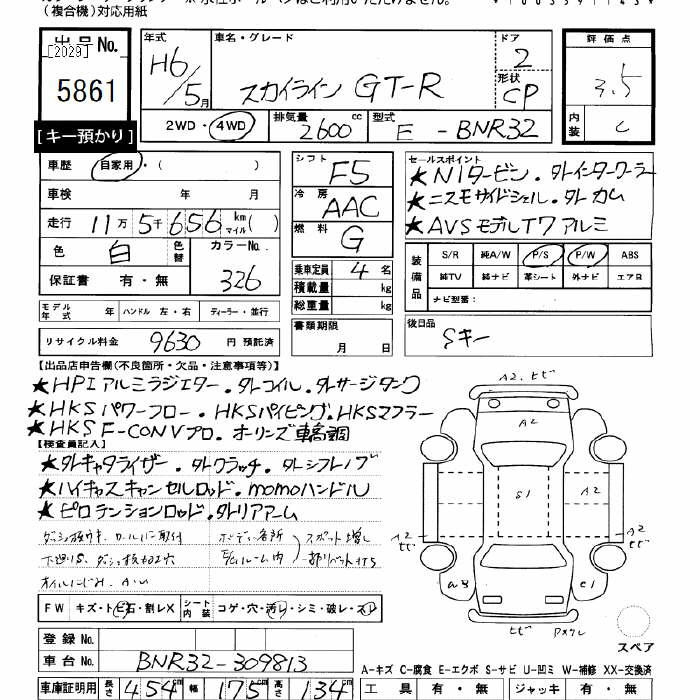 (複合機)対応用紙
出品No.
[2029]
5861
[キー預かり]
年式 車名・グレード ドア
H6/5月 スカイライン GT-R 2
形状 CP
2WD・4WD 排気量 2600cc 型式 E-BNR32
評価点
3.5
内装 C
車歴 自家用・( )
車検 年 月
走行 11万5千656km マイル( )
色 白 色替 カラーNo. 326
保証書 有・無
モデル年式 年 ハンドル 左・右 ディーラー・並行
リサイクル料金 9630 円 預託済
シフト F5
冷房 AAC
燃料 G
乗車定員 4名
積載量 kg
総重量 kg
書類期限 月 日
セールスポイント
★N1タービン.タトインタークーラー
★ニスモサイドシェル.タトカム
★AVSモデルT7アルミ
装備品 S/R 純A/W P/S P/W ABS
純TV 純ナビ 革シート 外ナビ エアB
ナビ型番:
後日品
Sキー
【出品店申告欄(不良箇所・欠品・注意事項等)】
★HPIアルミラジエター.タトコイル.タトサージタンク
★HKSパワーフロー.HKSパイピング.HKSマフラー
★HKS F-CONVプロ.オーリンズ車高調
【検査員記入】
★タトキャタライザー.タトクラッチ.タトシフトノブ
★ハイキャスキャンセルロッド.momoハンドル
★ピロテンションロッド.タトリアアーム
ボディ各所 スポット増し
室内
オイルにじみ
A2.ヒビ
A2
S1
A2
A2 ヒビ
A2 ヒビ
a3
C1
ヒビ
スペア
FW キズ・トビ石・割レX シート内装 コゲ・穴・汚レ・シミ・破レ・スレ
登録No.
車台No. BNR32-309813
車庫証明用 長さ 454cm 幅 175cm 高さ 134cm
A-キズ C-腐食 E-エクボ S-サビ U-凹ミ W-補修 XX-交換済
工具 有・無 ジャッキ 有・無